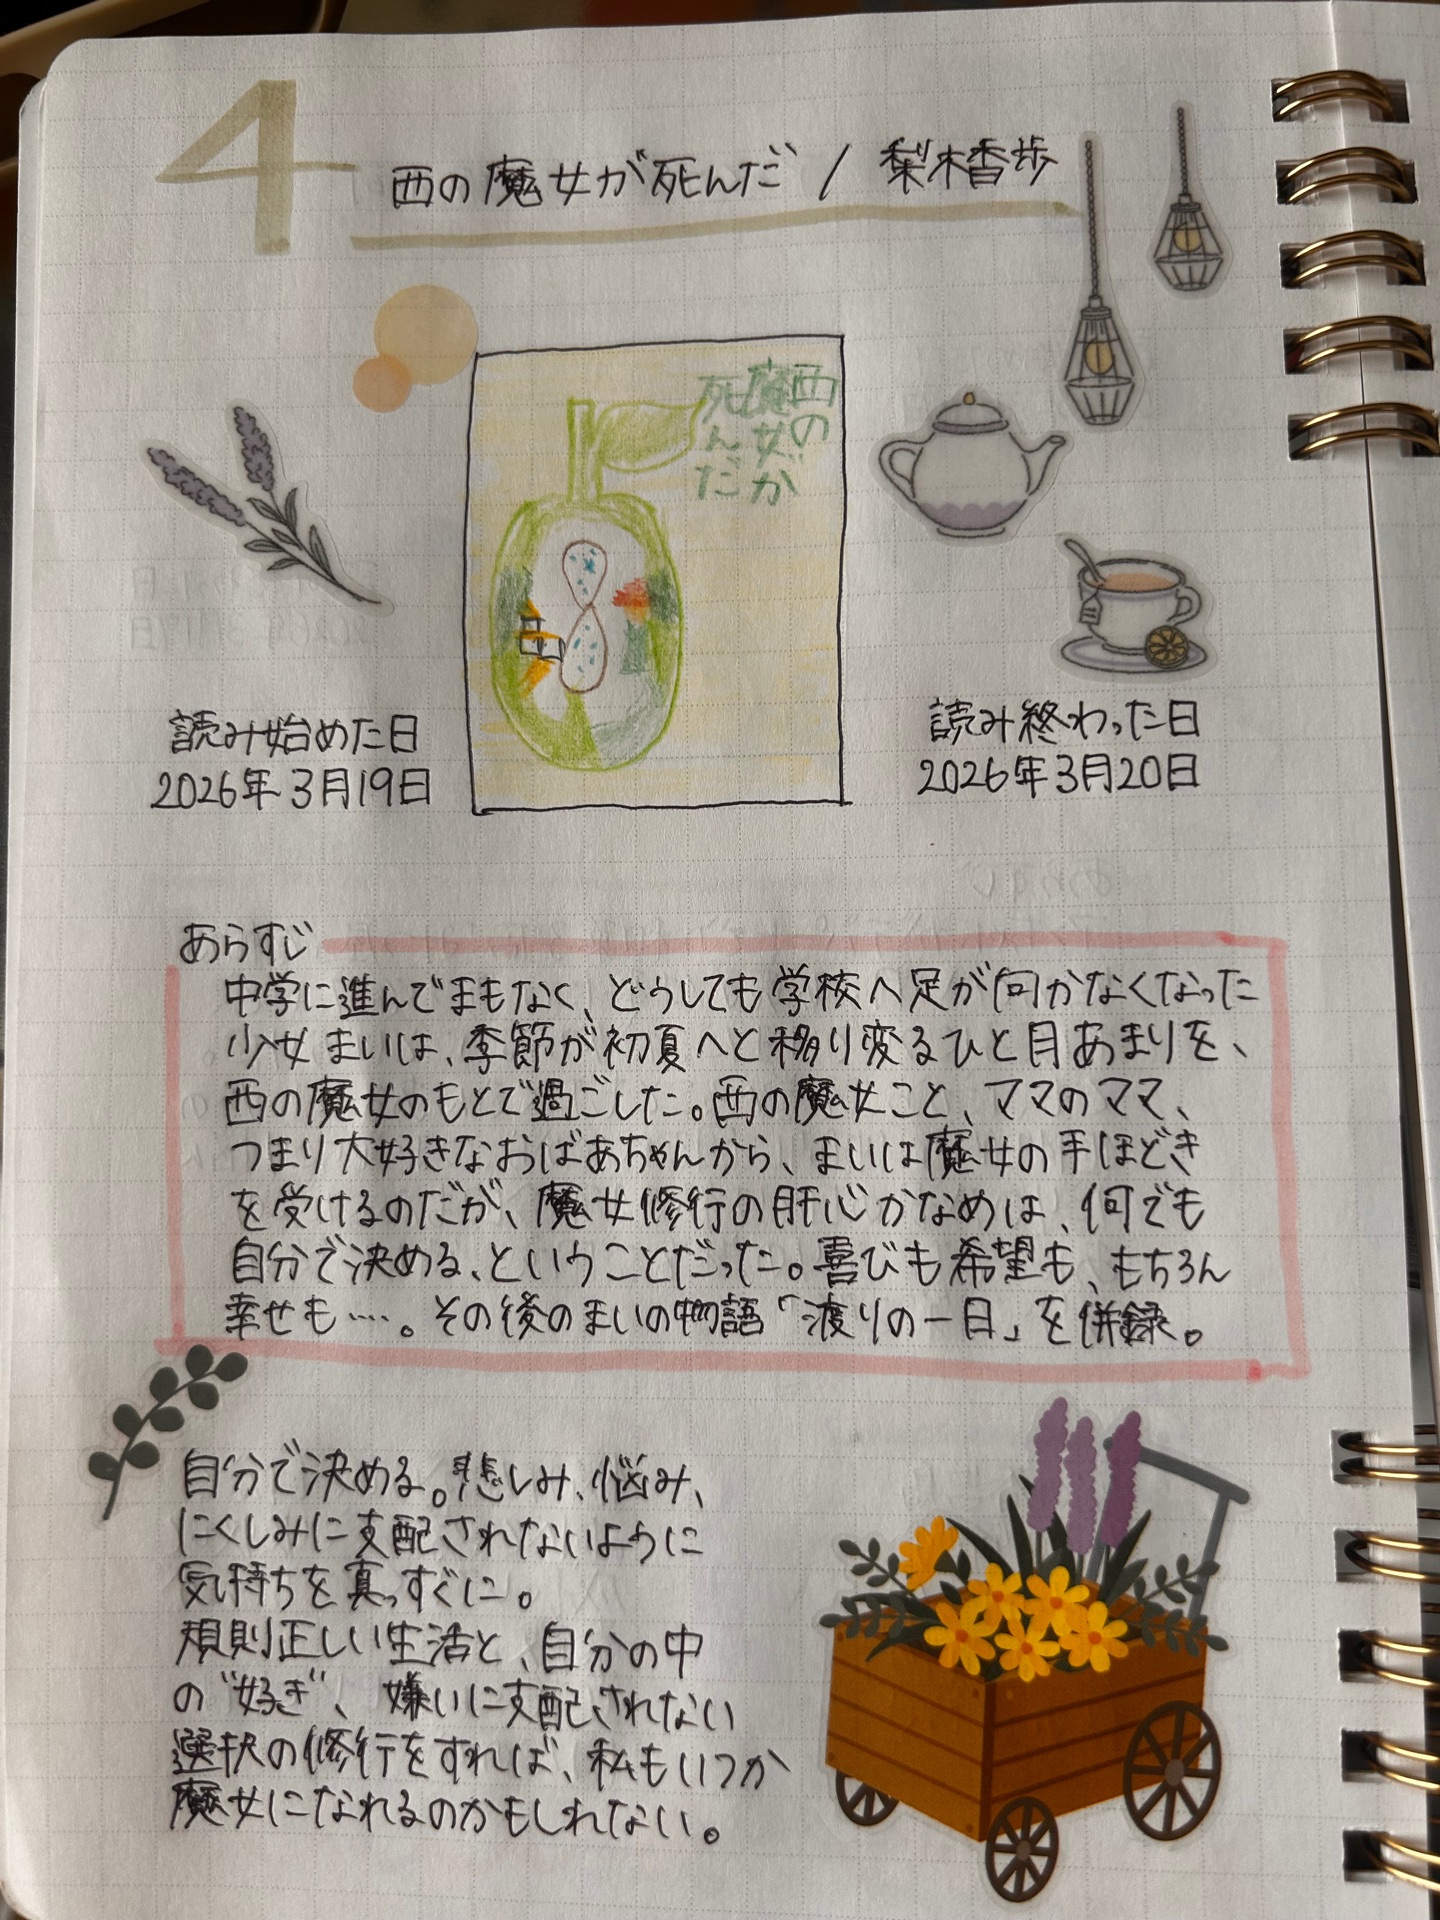 4
西の魔女が死んだ / 梨木香歩
西の
魔女が
死んだ
読み始めた日
2026年3月19日
読み終わった日
2026年3月20日
あらすじ
中学に進んでまもなく、どうしても学校へ足が向かなくなった
少女まいは、季節が初夏へと移り変るひと月あまりを、
西の魔女のもとで過ごした。西の魔女こと、ママのママ、
つまり大好きなおばあちゃんから、まいは魔女の手ほどき
を受けるのだが、魔女修行の肝心かなめは、何でも
自分で決める、ということだった。喜びも希望も、もちろん
幸せも…。その後のまいの物語「渡りの一日」を併録。
自分で決める。悲しみ、悩み、
にくしみに支配されないように
気持ちを真っすぐに。
規則正しい生活と、自分の中
の"好き"、嫌いに支配されない
選択の修行をすれば、私もいつか
魔女になれるのかもしれない。